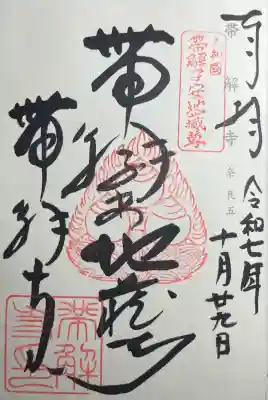 奉拝
帯解寺 奈良五
令和七年
十月廿九日
大和國
帯解子安地蔵尊
帯解子安地蔵尊
帯解寺
帯解寺印